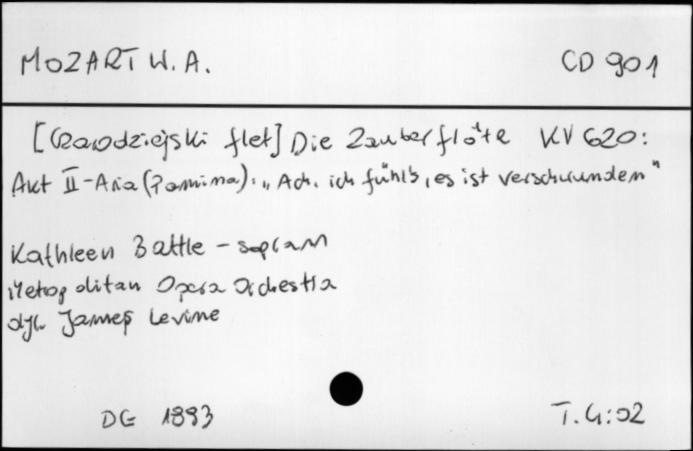 MOZART W. A. CD 901
[Czarodziejski flet] Die Zauberflöte KV 620:
Akt II - Aria (Pamina): „Ach, ich fühl's, es ist verschwunden"
Kathleen Battle - sopran
Metropolitan Opera Orchestra
dyr. James Levine
DG 1993 T. 4:02